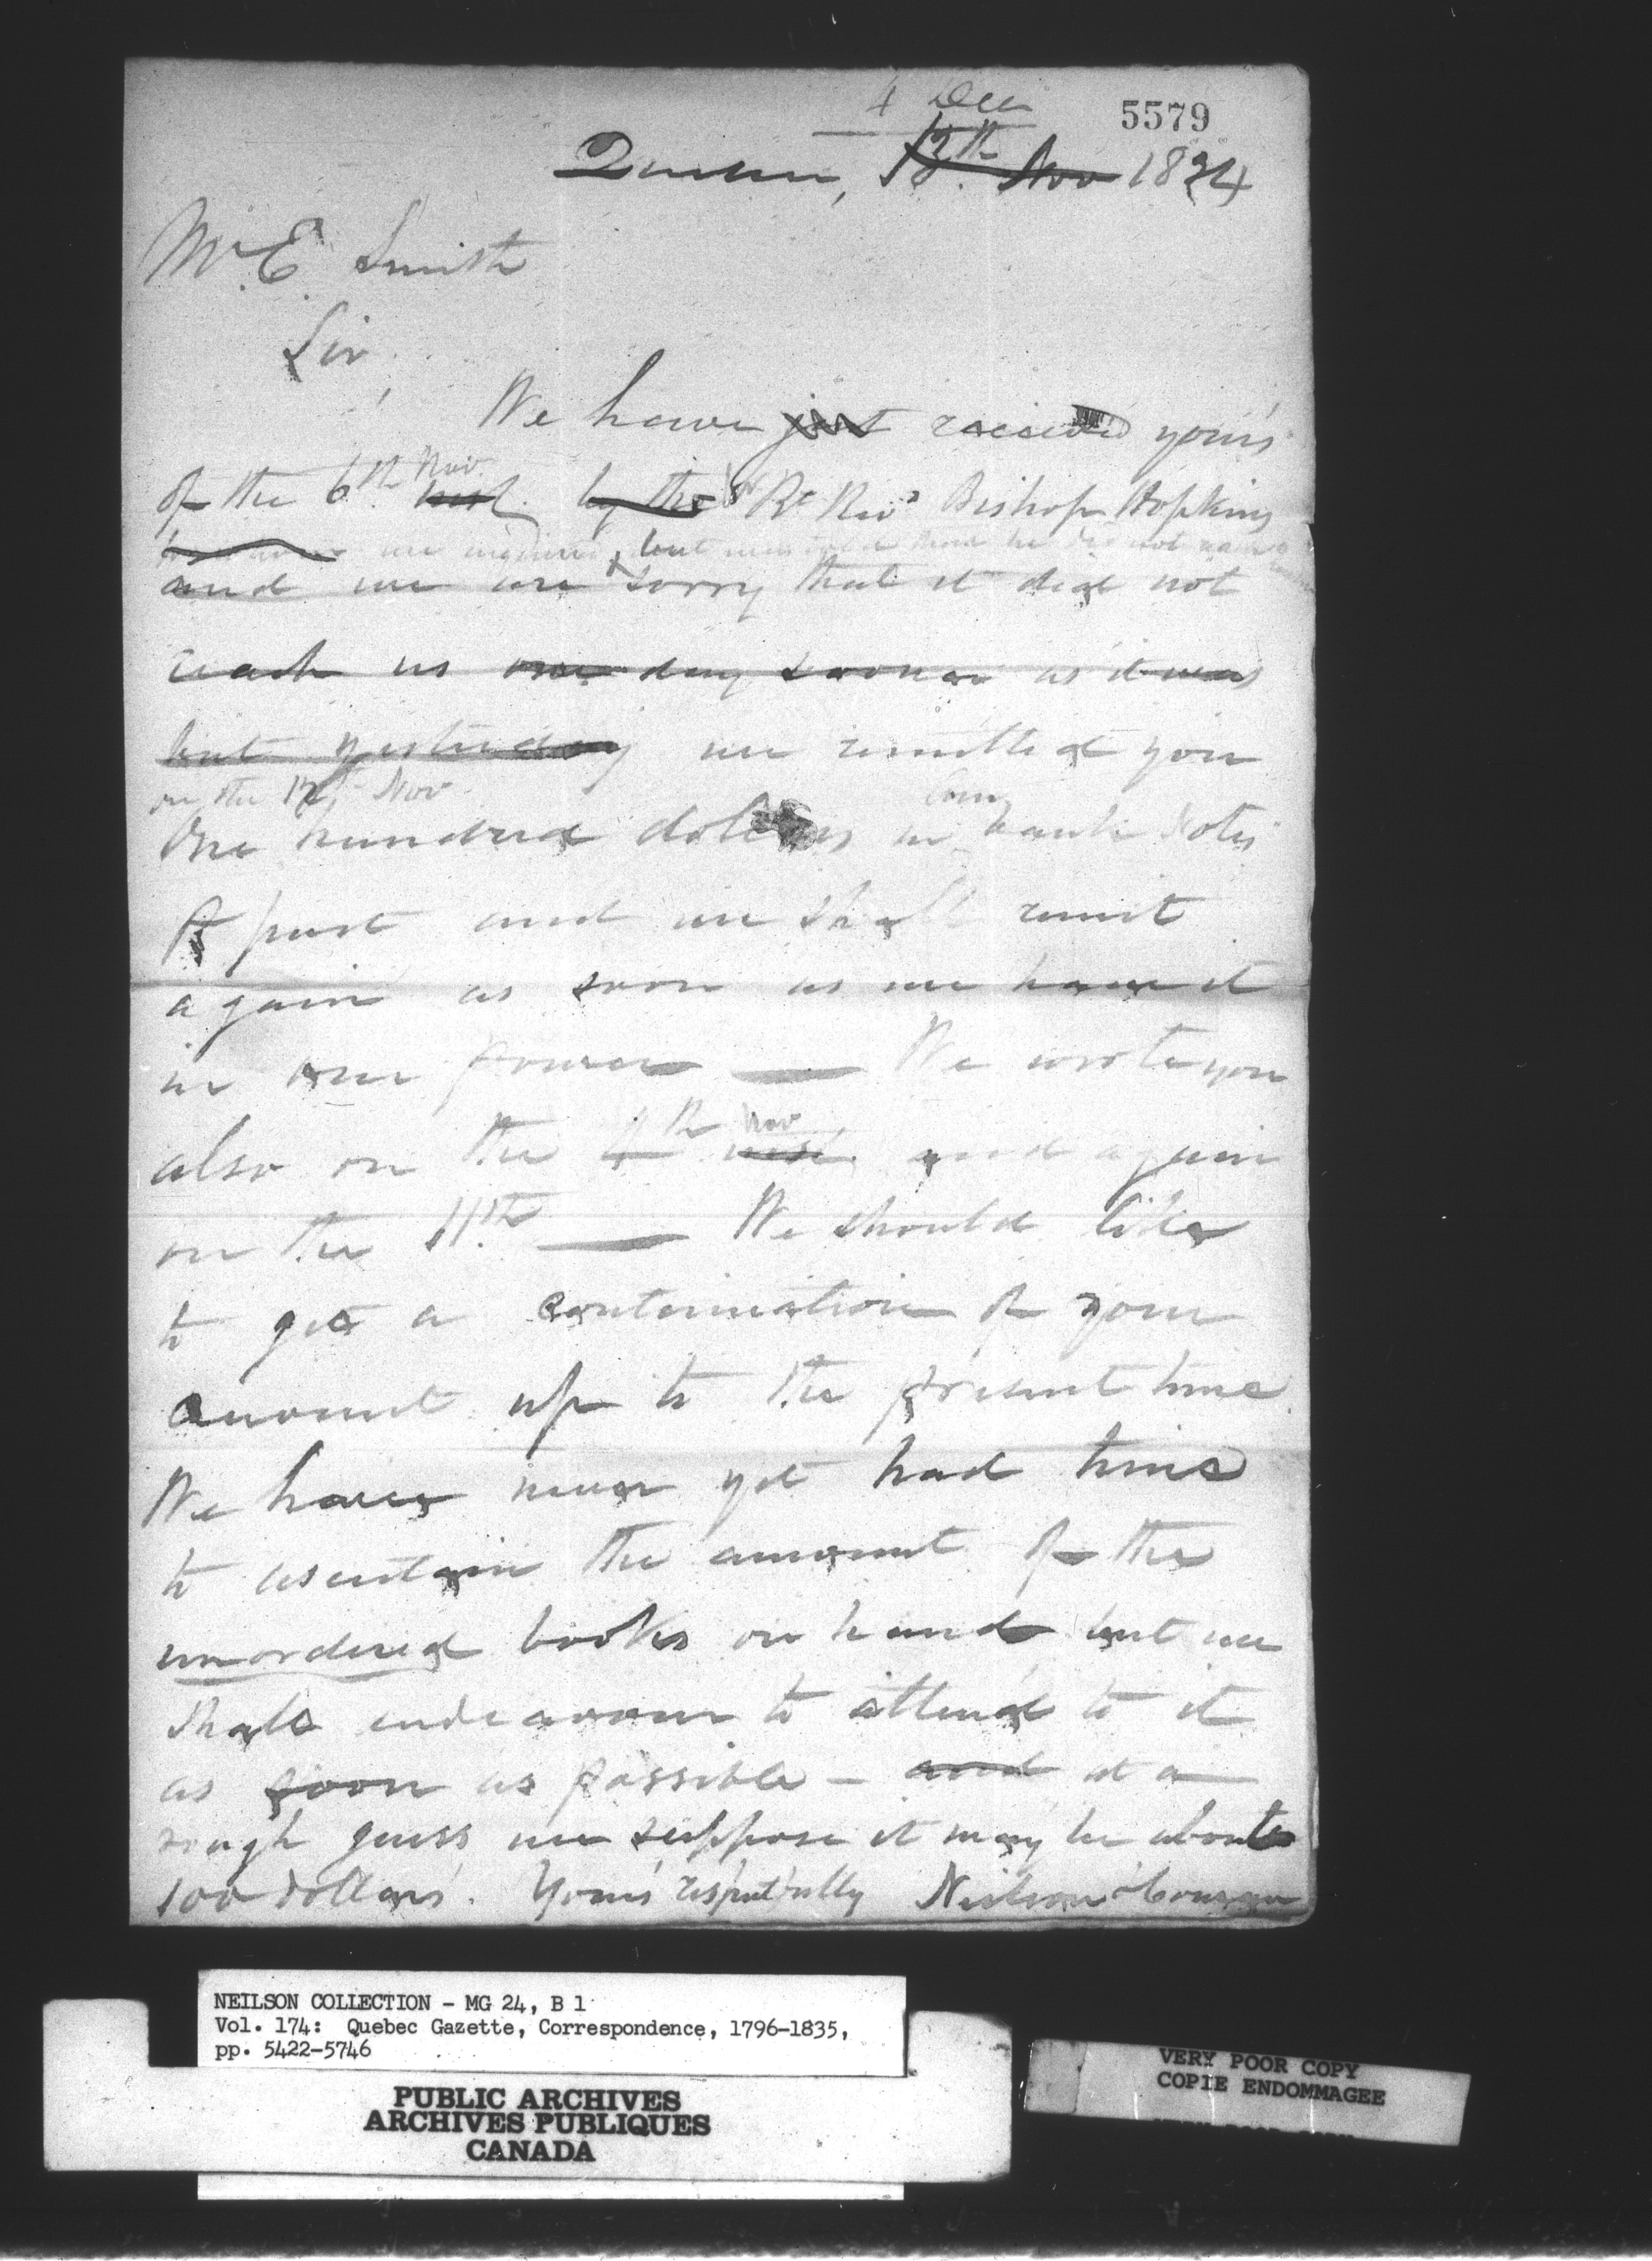 4 Dec
5579
Quebec, 12th Nov 1834
Mr. E. Smith
Sir
We have just received yours
Nov
of the 6th inst. by the Rt Revd Bishop Hopkins
but he did not
and we are sorry that it did not
reach us one day sooner as it was
but yesterday we remitted you
on the 12th Nov
One hundred dollars in bank Notes
P post and we shall remit
again as soon as we have it
in our power — We wrote you
Nov
also on the 4th inst. and again
on the 11th — We should like
to get a continuation of your
amount up to the present time.
We have never yet had time
to ascertain the amount of the
unordered books on hand but we
shall endeavour to attend to it
as soon as possible - and at a
rough guess we suppose it may be about
100 dollars. Yours respectfully Neilson & Cowan
NEILSON COLLECTION - MG 24, B 1
Vol. 174: Quebec Gazette, Correspondence, 1796-1835,
pp. 5422-5746
PUBLIC ARCHIVES
ARCHIVES PUBLIQUES
CANADA
VERY POOR COPY
COPIE ENDOMMAGEE